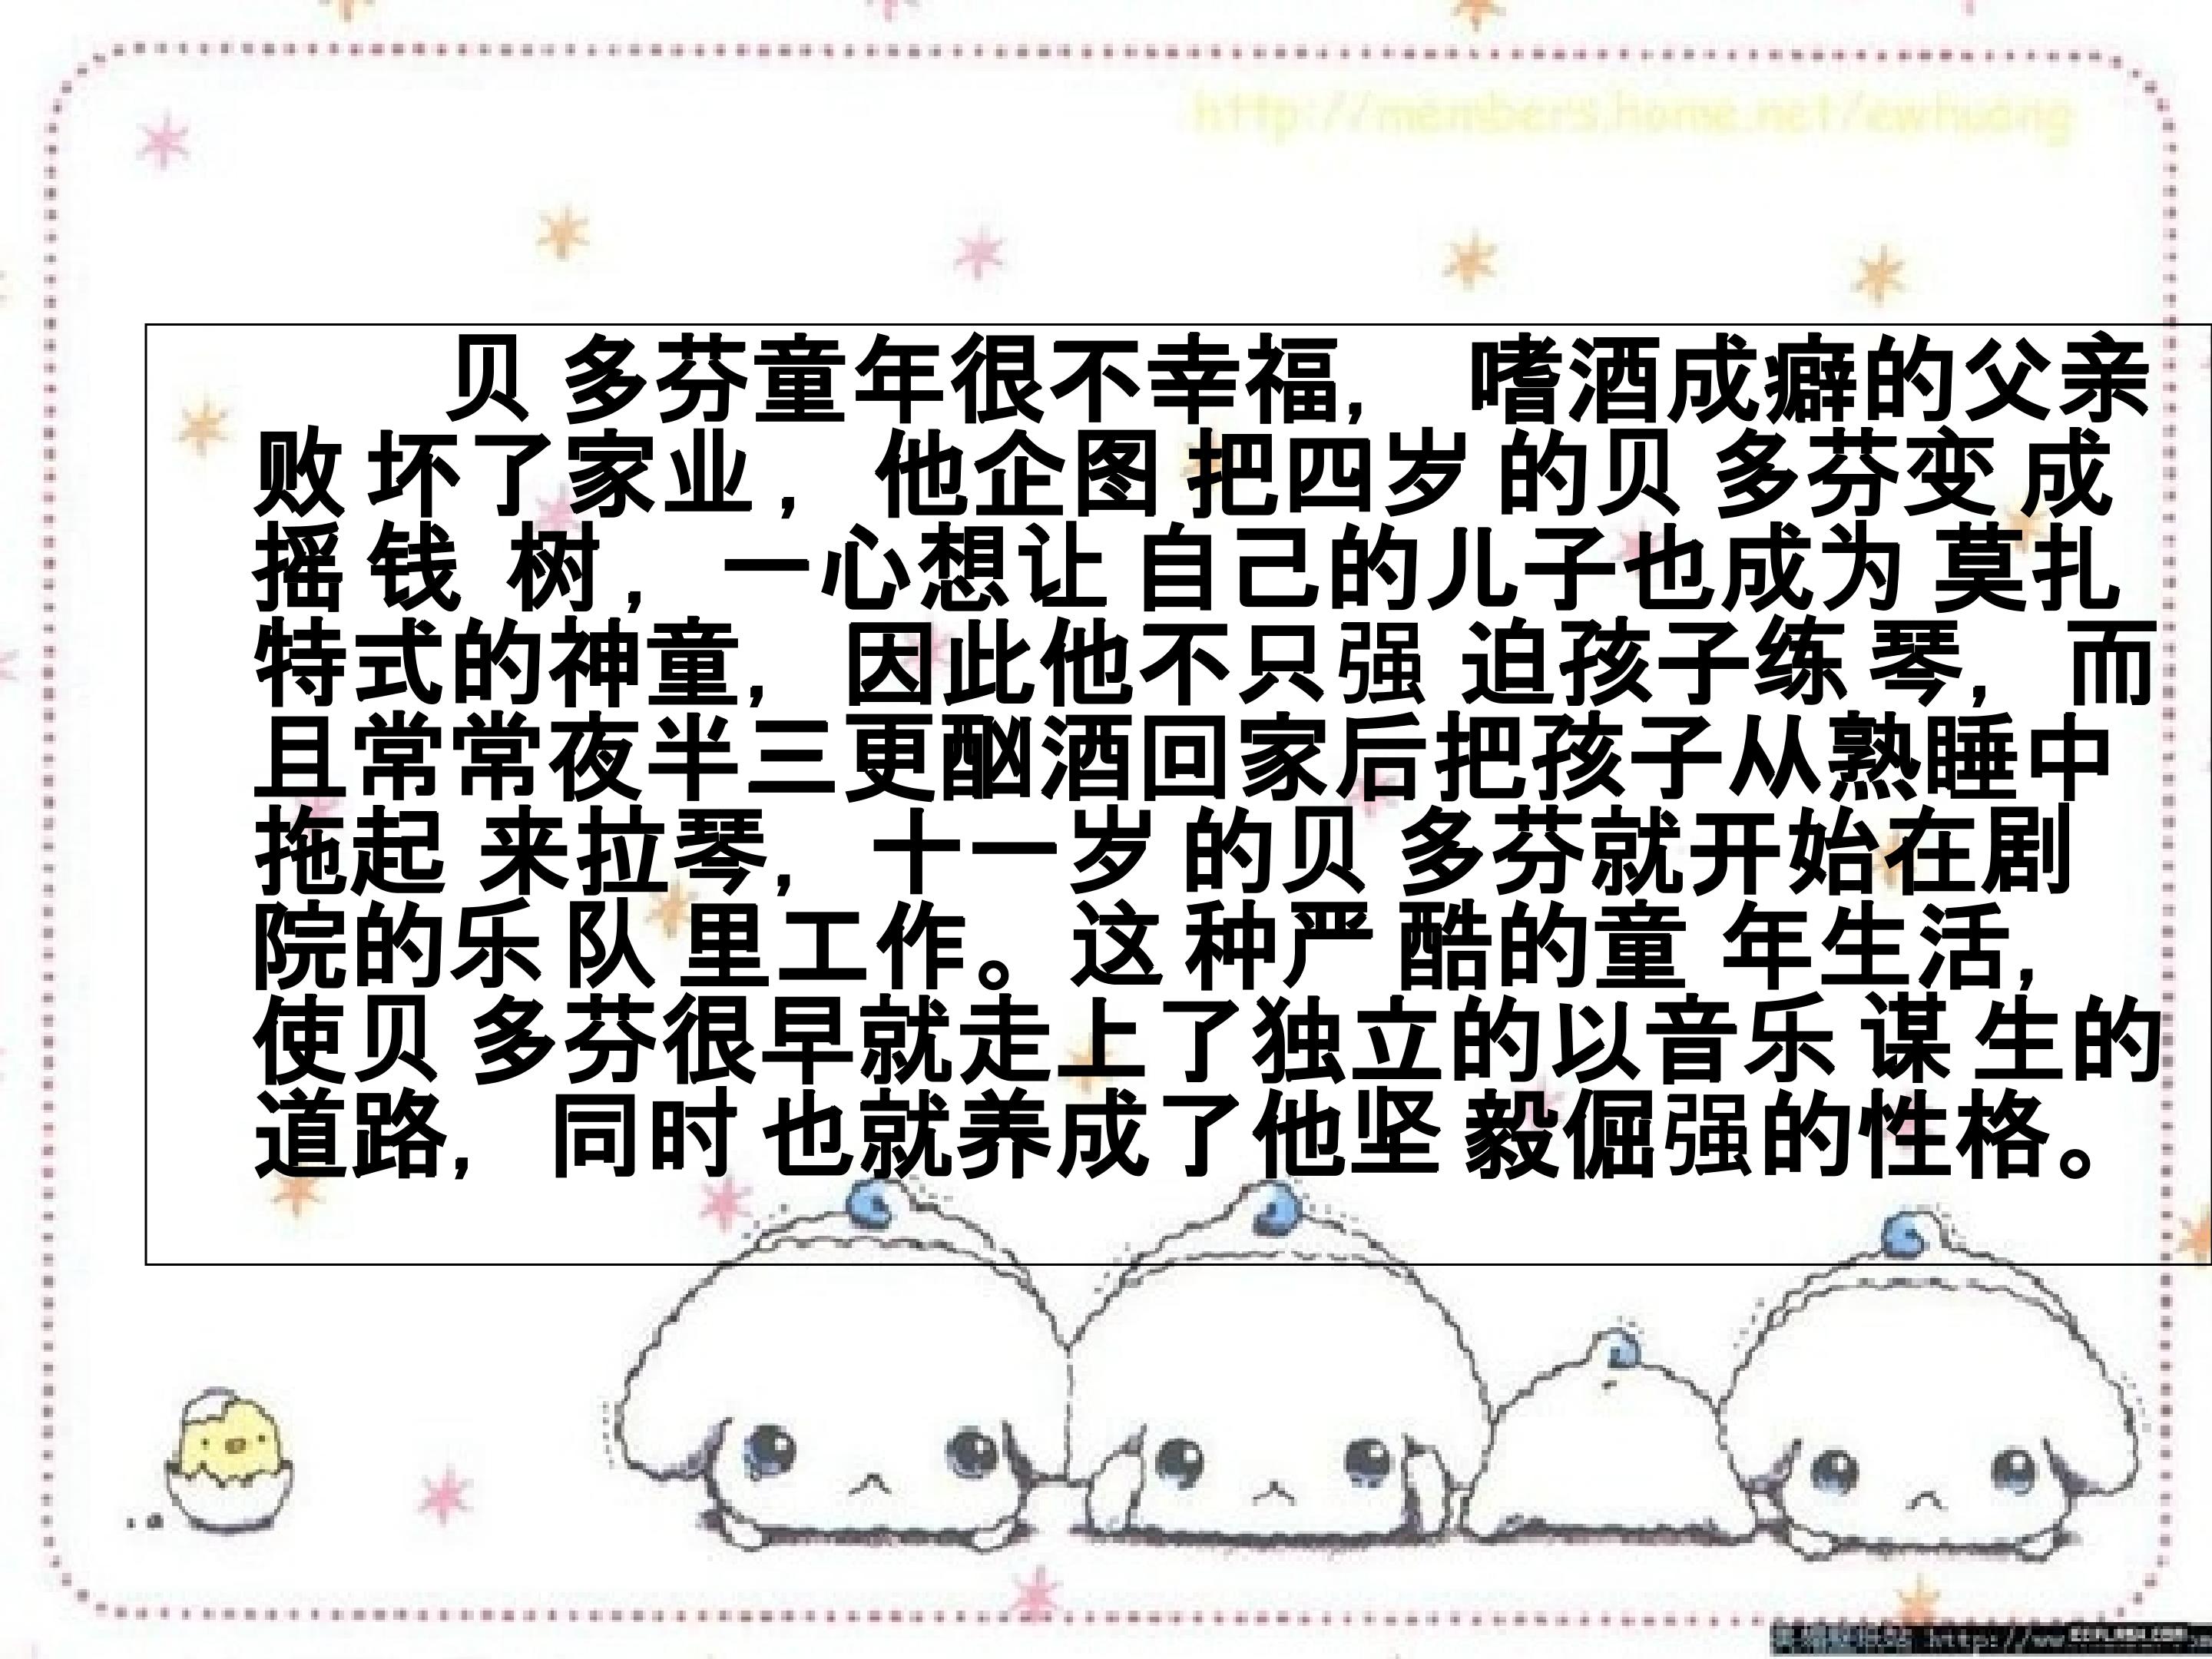 http://members.home.net/ewhuang
贝多芬童年很不幸福，嗜酒成癖的父亲
败坏了家业，他企图把四岁的贝多芬变成
摇钱树，一心想让自己的儿子也成为莫扎
特式的神童，因此他不只强迫孩子练琴，而
且常常夜半三更酗酒回家后把孩子从熟睡中
拖起来拉琴，十一岁的贝多芬就开始在剧
院的乐队里工作。这种严酷的童年生活，
使贝多芬很早就走上了独立的以音乐谋生的
道路，同时也就养成了他坚毅倔强的性格。